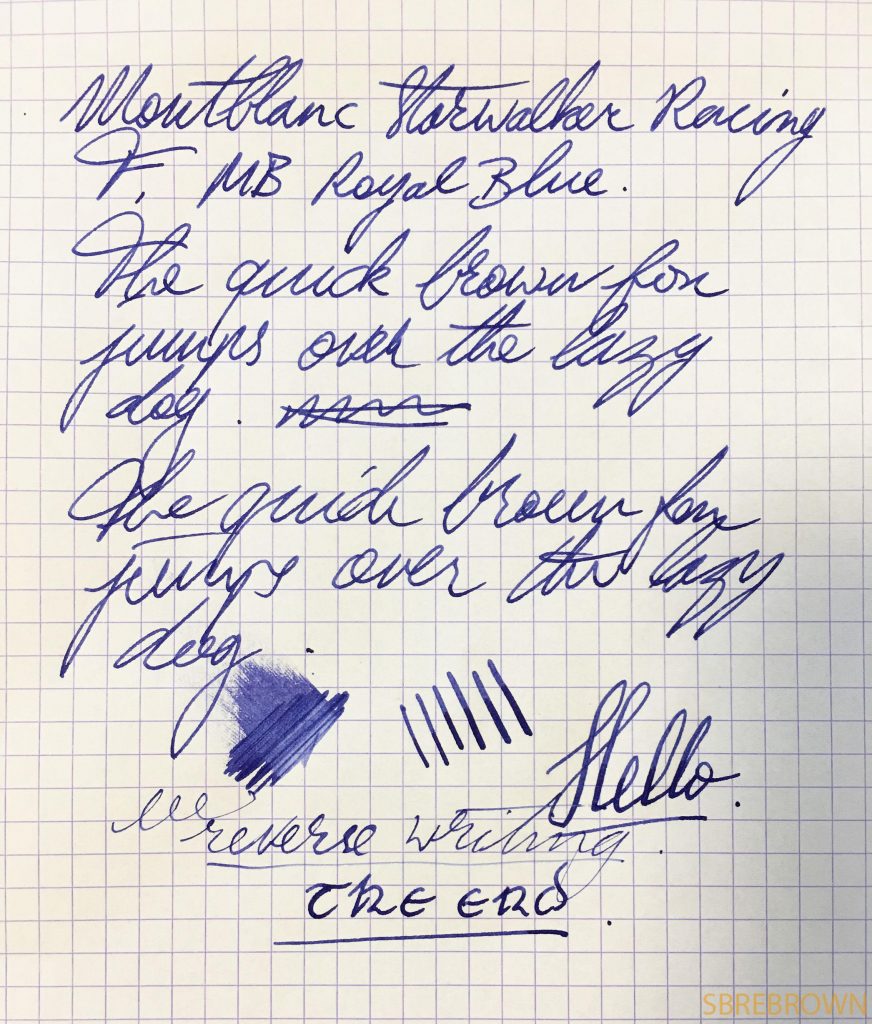 Montblanc Starwalker Racing
F, MB Royal Blue.
The quick brown fox
jumps over the lazy
dog.
The quick brown fox
jumps over the lazy
dog.
Hello.
reverse writing.
THE END.
SBREBROWN